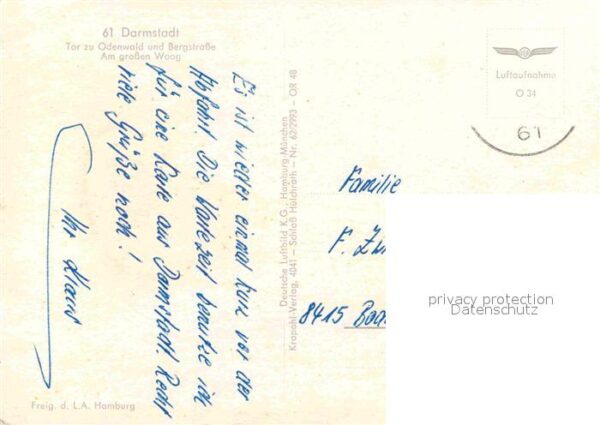 61 Darmstadt
Tor zu Odenwald und Bergstraße
Am großen Woog
Es ist wieder einmal kurz vor der
Abfahrt. Die Wartezeit benutze ich
für eine Karte aus Darmstadt. Recht
viele Grüße noch!
Ihr Klaus
Freig. d. L.A. Hamburg
Deutsche Luftbild K.G., Hamburg-München
Krapohl-Verlag, 4041 – Schloß Hülchrath – Nr. 62/2993 – OR 48
Luftaufnahme
O 34
61
Familie
F.
8415
privacy protection
Datenschutz